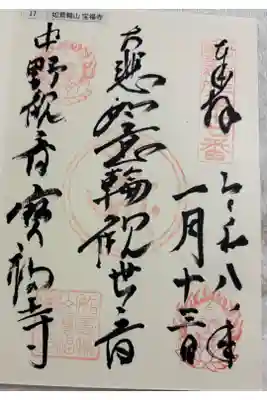 17 如意輪山 宝福寺
奉拝
令和八年
一月十三日
大悲如意輪観世音
中野観音寳福寺